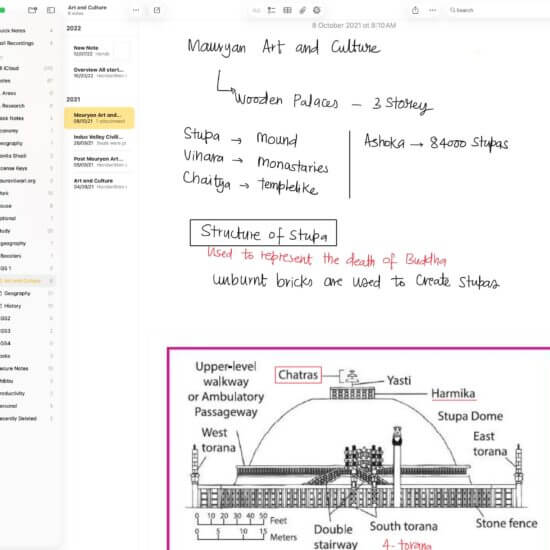 Art and Culture
6 notes
Search
Quick Notes
Call Recordings
iCloud
Notes
Areas
Research
Quick Notes
Economy
Geography
License Keys
Work
House
National
Study
geography
Boosters
GS 1
Art and Culture
Geography
History
GS2
GS3
GS4
Books
Secure Notes
Productivity
Personal
Recently Deleted
2022
New Note
12/07/22 Handw
Overview All start...
16/03/22 Handwritten n
2021
Mauryan Art and...
08/10/21 1 attachment
Indus Valley Civili...
Post Mauryan Art...
Handwritten n
Art and Culture
04/09/21 Handwritten n
8 October 2021 at 8:10 AM
Mauryan Art and Culture
Wooden Palaces – 3 Storey
Stupa → mound
Vihara → monastaries
Chaitya → templelike
Ashoka → 84000 Stupas
Structure of Stupa
Used to represent the death of Buddha
unburnt bricks are used to create stupas
Upper-level
walkway
or Ambulatory
Passageway
Chatras
Yasti
Harmika
Stupa Dome
West
torana
East
torana
0 10 20 30 40 50
Feet
0 5 10 15
Meters
Double
stairway
South torana
Stone fence
4- torana